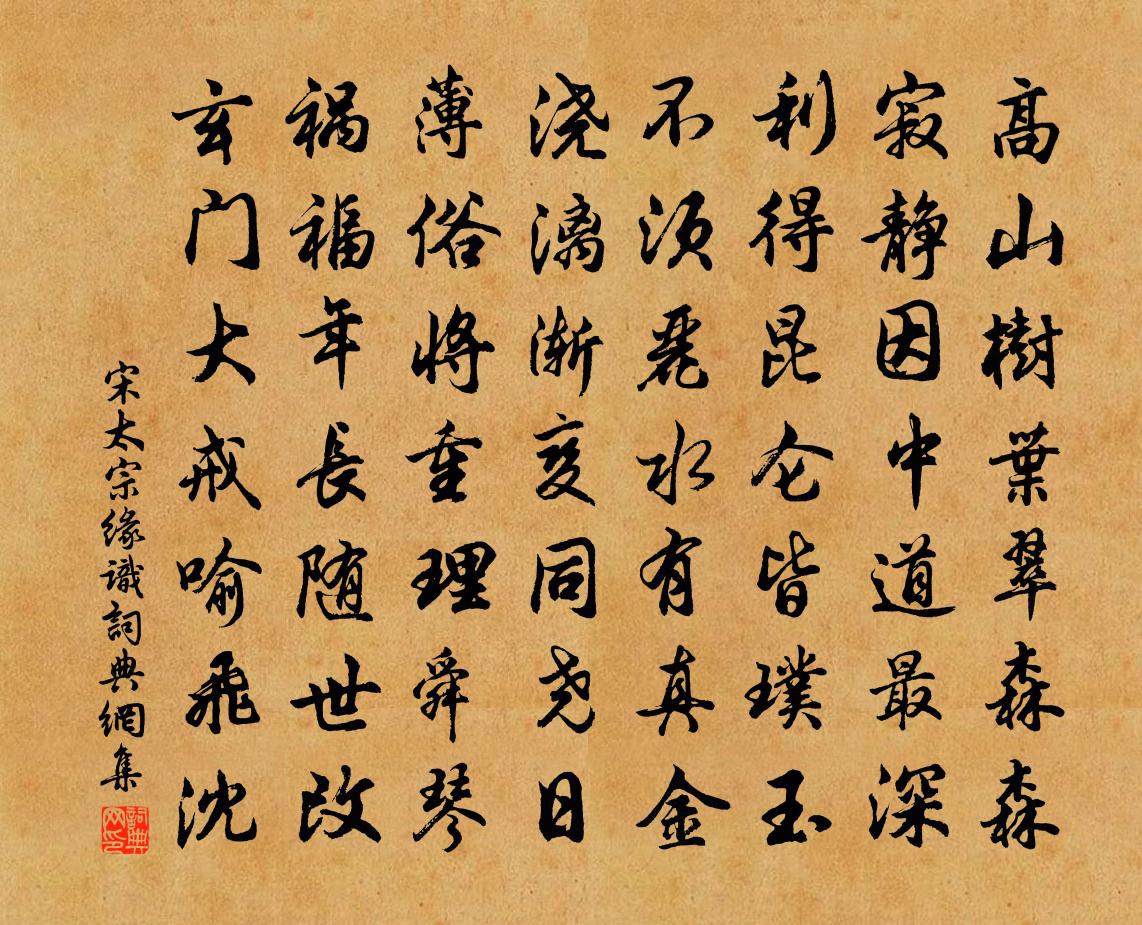 高山樹葉翠森森
寂静因中道最深
利得昆仑皆璞玉
不须丽水有真金
浇漓渐变同尧日
薄俗将重理舜琴
祸福年長随世改
玄门大戒喻飛沈
宋太宗緣識詞典網集
詞典网印